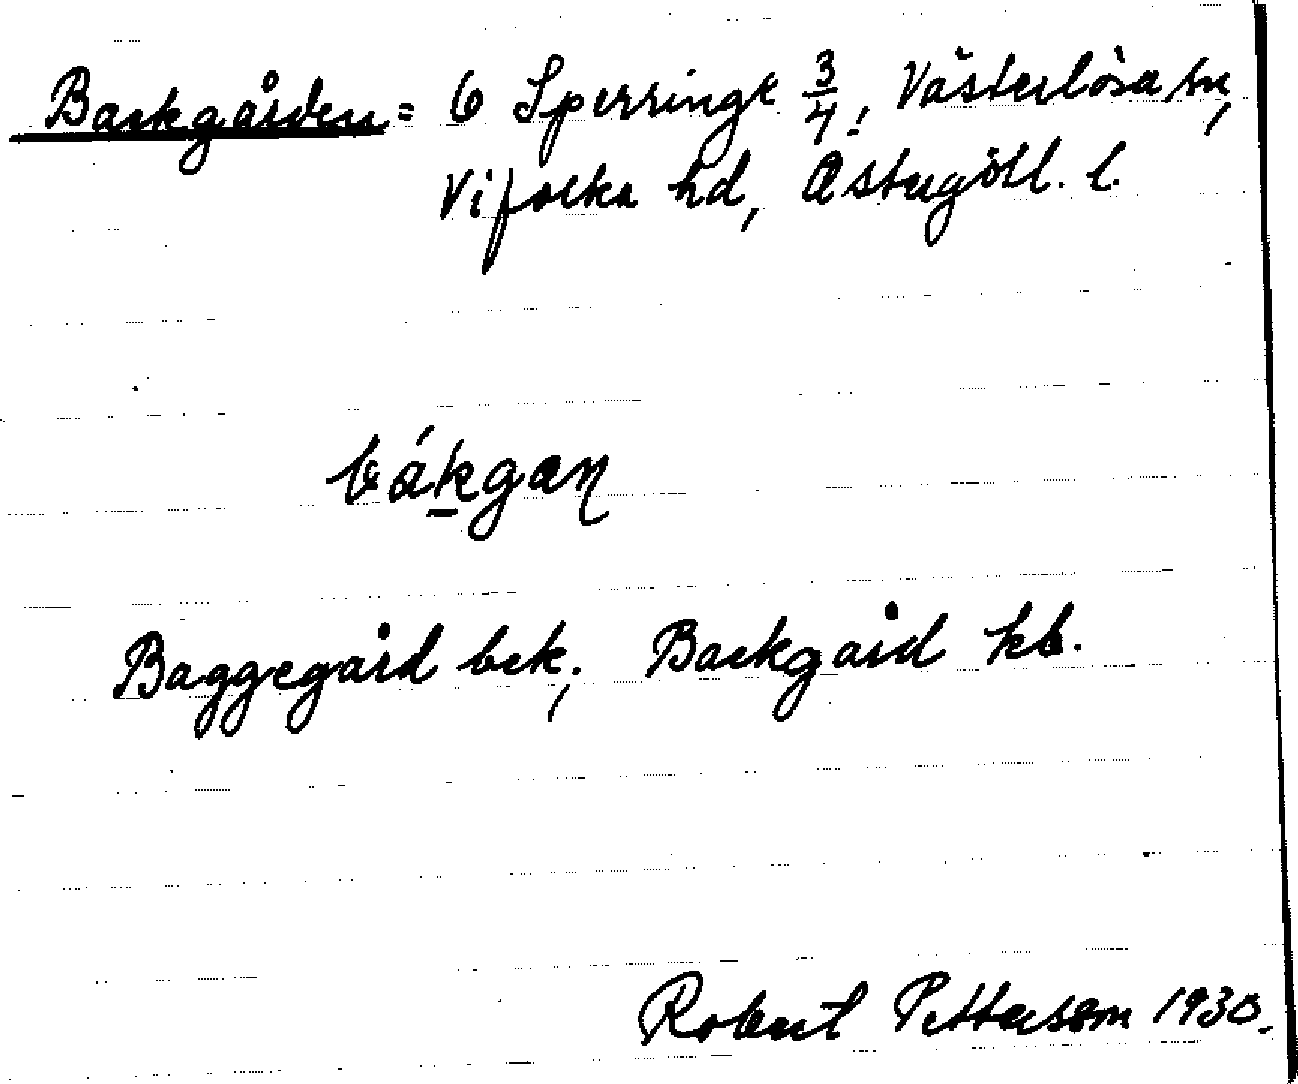 Backgården = 6 Sperringe 3/4, Västerlösa sn,
Vifolka hd, Östergötl. l.
bákgaɳ
Baggegård bek.; Backgård kb.
Robert Pettersson 1930.